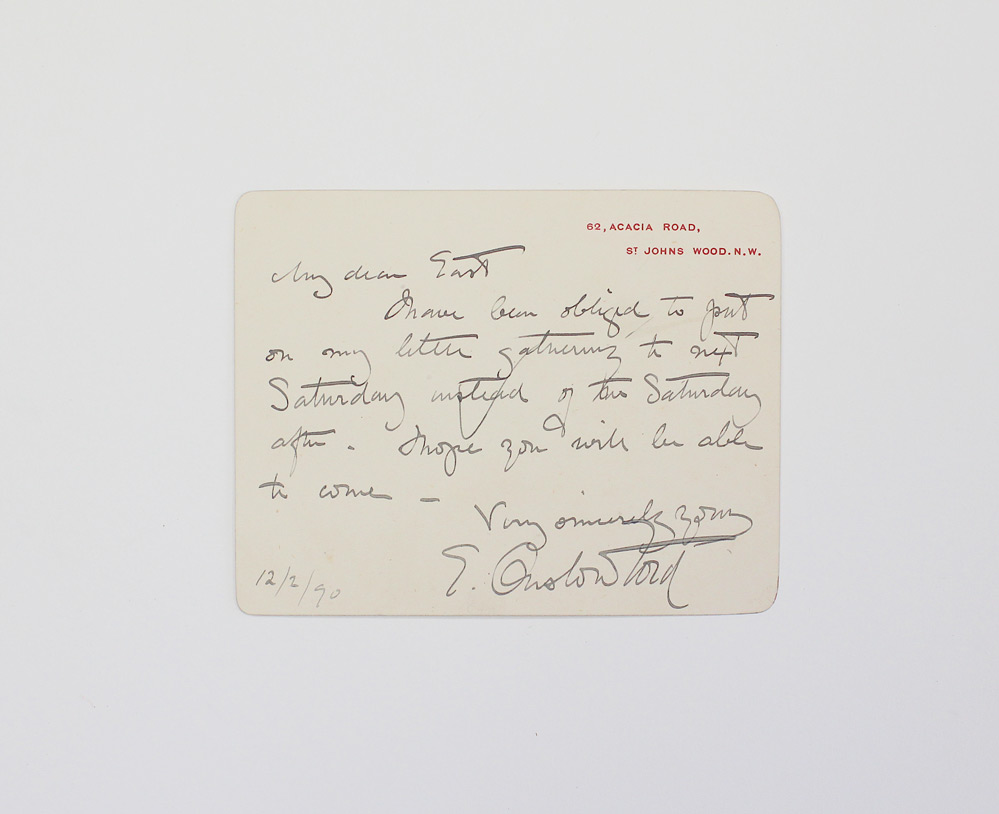 62, ACACIA ROAD,
ST JOHNS WOOD. N.W.
My dear East
I have been obliged to put
on my little gathering to next
Saturday instead of the Saturday
after. I hope you will be able
to come –
Very sincerely yours
E. Onslow Ford
12/2/90